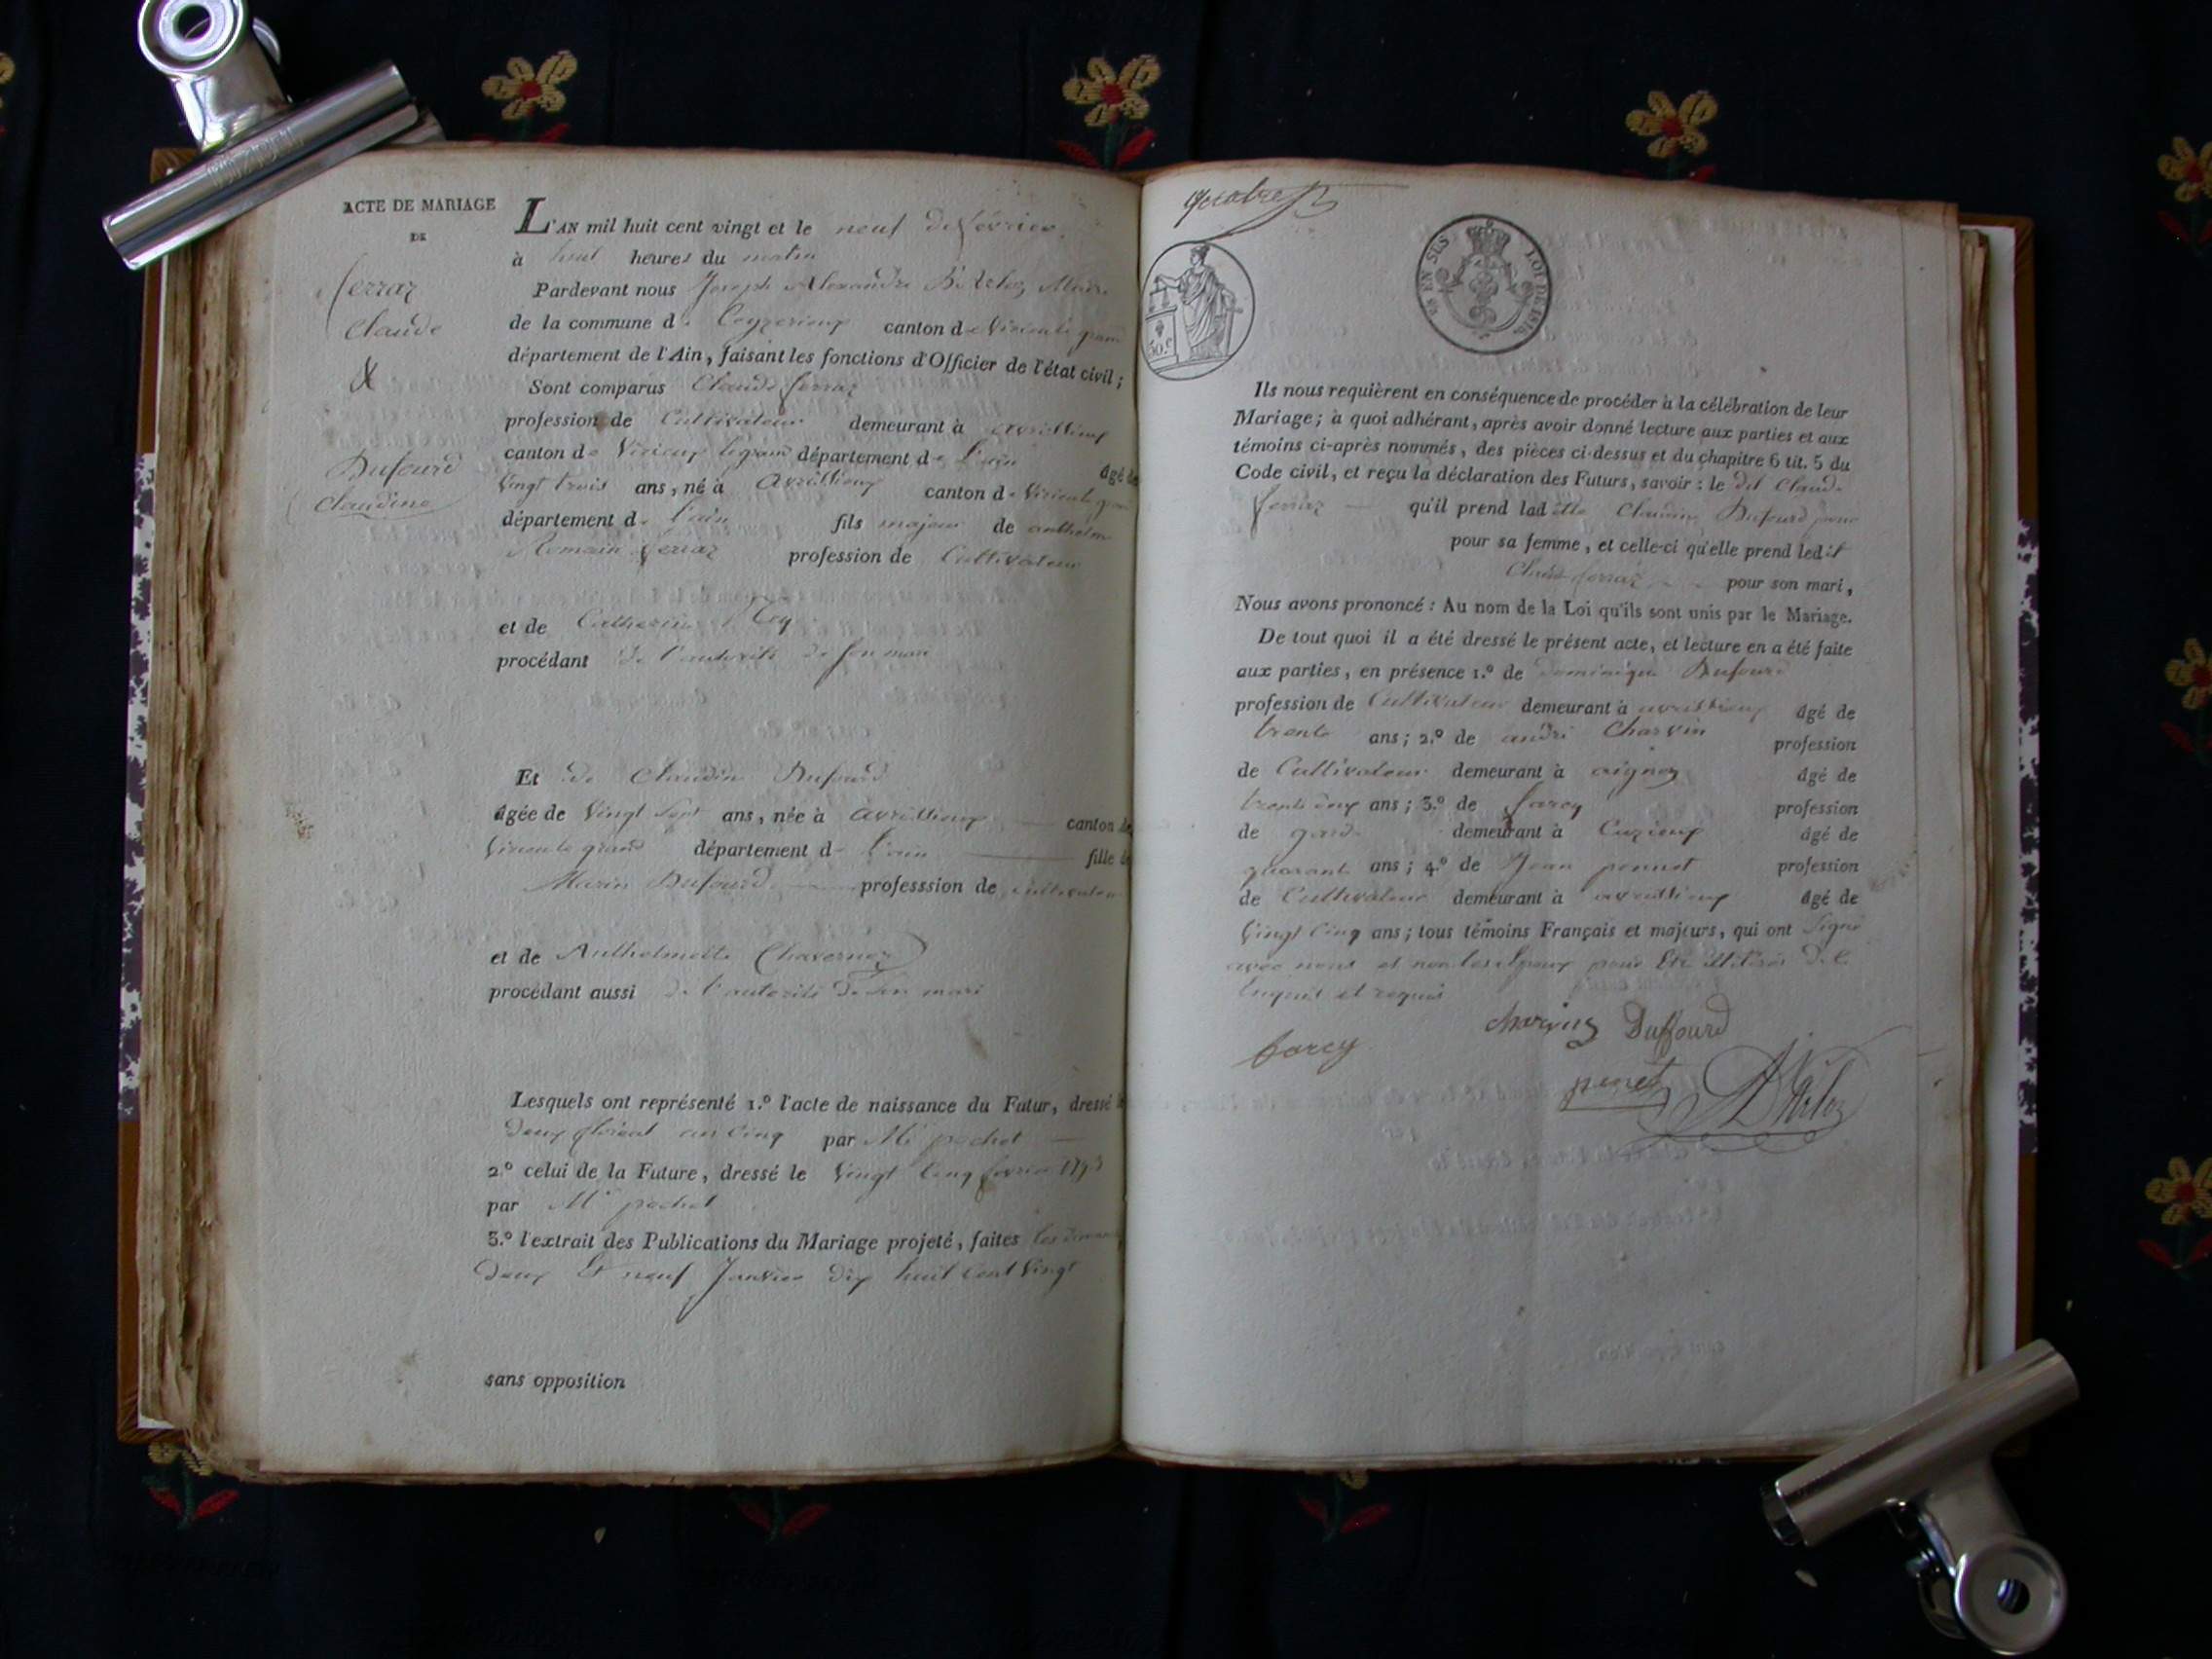 ACTE DE MARIAGE
DE
ferraz
Claude
&
Dufourd
Claudine
L'AN mil huit cent vingt et le neuf de février
à huit heures du matin
Pardevant nous Joseph Alexandre D'Arloz Maire
de la commune de Ceyzerieux canton de Virieu le grand
département de l'Ain, faisant les fonctions d'Officier de l'état civil;
Sont comparus Claude ferraz
profession de Cultivateur demeurant à avrissieux
canton de Virieux le grand département de l'ain âgé de
Vingt trois ans, né à avrissieux canton de Virieu le grand
département de l'ain fils majeur de anthelme
Romain ferraz profession de Cultivateur
et de Catherine
procédant de l'autorité de son mari
Et de Claudine Dufourd
âgée de Vingt sept ans, née à avrissieux canton de
Virieu le grand département de l'ain fille de
Marin Dufourd professsion de cultivateur
et de Anthelmette Chavornaz
procédant aussi de l'autorité de son mari
Lesquels ont représenté 1.º l'acte de naissance du Futur, dressé le
deux floréal an cinq par Mr pochet
2º celui de la Future, dressé le Vingt cinq février 1793
par Mr pochet
3.º l'extrait des Publications du Mariage projeté, faites les dimanches
deux et neuf Janvier dix huit cent Vingt
sans opposition
EN SUS LOI DE 1816.
50.c
Ils nous requièrent en conséquence de procéder à la célébration de leur
Mariage; à quoi adhérant, après avoir donné lecture aux parties et aux
témoins ci-après nommés, des pièces ci-dessus et du chapitre 6 tit. 5 du
Code civil, et reçu la déclaration des Futurs, savoir: le dit Claude
ferraz qu'il prend ladite Claudine Dufourd pour
pour sa femme, et celle-ci qu'elle prend ledit
Claude ferraz pour son mari,
Nous avons prononcé: Au nom de la Loi qu'ils sont unis par le Mariage.
De tout quoi il a été dressé le présent acte, et lecture en a été faite
aux parties, en présence 1.º de dominique Dufourd
profession de Cultivateur demeurant à avrissieux âgé de
trente ans; 2.º de andré Charvin profession
de Cultivateur demeurant à aignoz âgé de
trente deux ans; 3.º de farcy profession
de garde demeurant à Cuzieux âgé de
quarante ans; 4.º de Jean pennet profession
de Cultivateur demeurant à avrissieux âgé de
Vingt cinq ans; tous témoins Français et majeurs, qui ont signé
avec nous et non les époux pour être illitérés de ce
enquis et requis
farcy
charvin Duffourd
penet D'Arloz